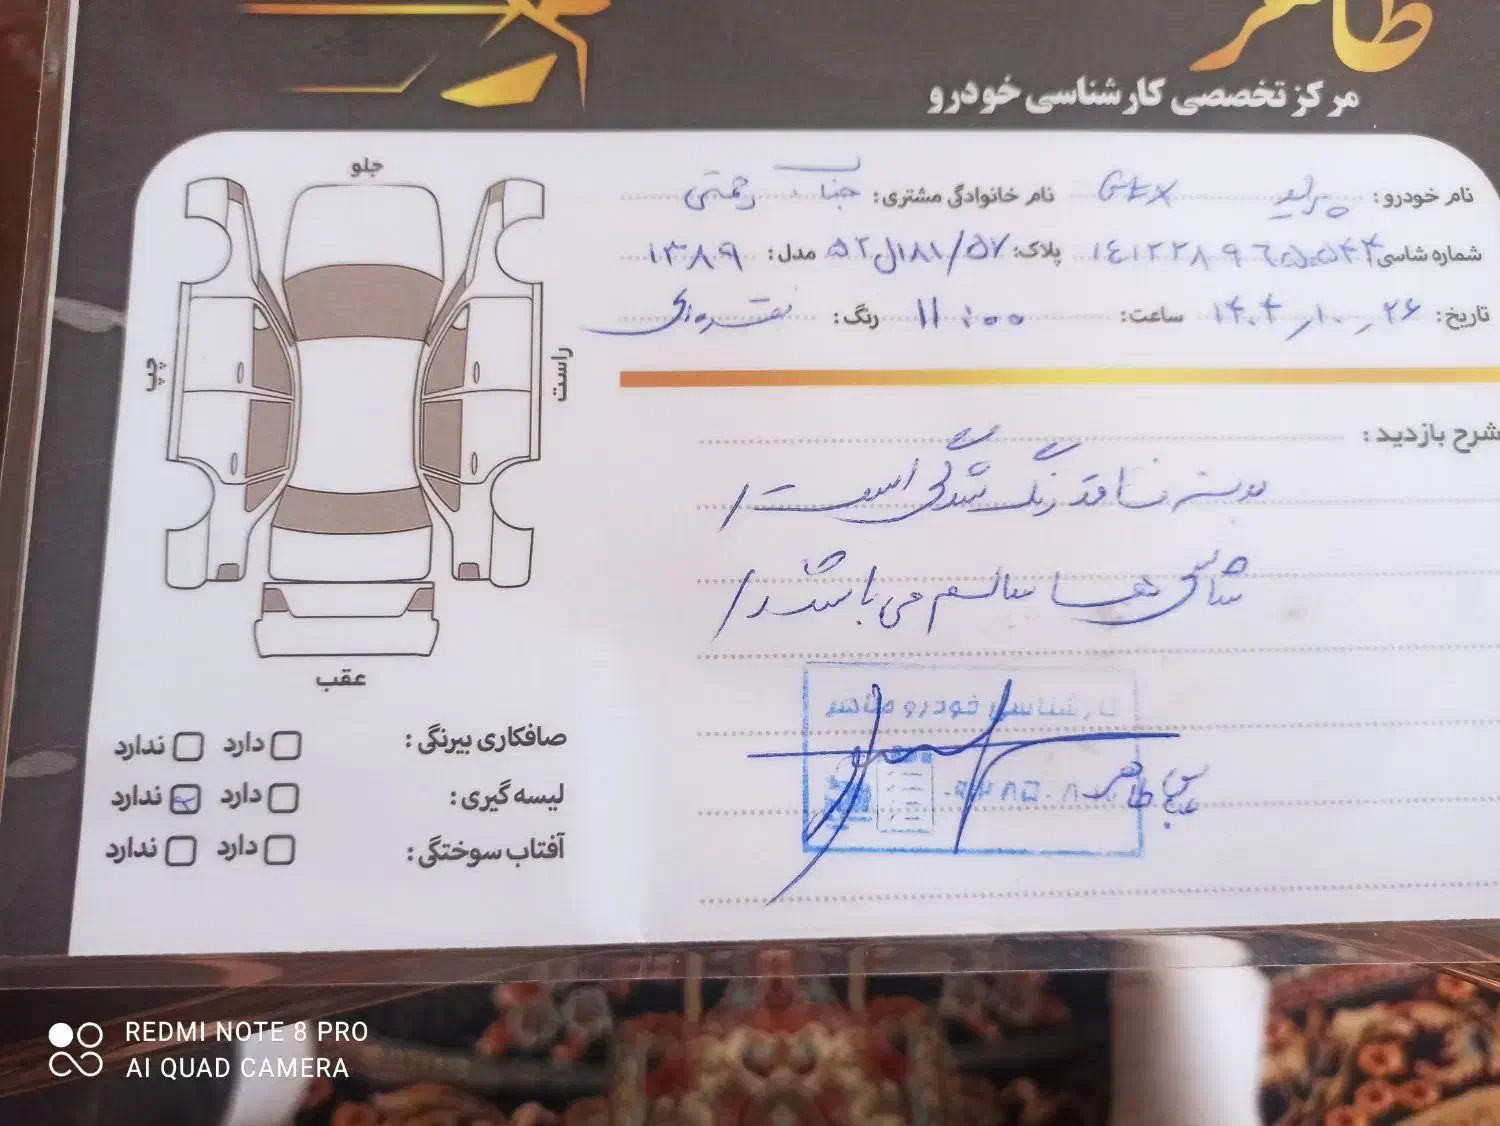 طاهر
مرکز تخصصی کارشناسی خودرو
نام خودرو: پراید GTX نام خانوادگی مشتری: جناب رحمتی
شماره شاسی پلاک: ۵۷/۱۸۱ل۵۲ مدل: ۱۳۸۹
تاریخ: ۱۴۰۴٫۱۰٫۲۶ ساعت: ۱۱:۰۰ رنگ: نقره‌ای
شرح بازدید:
بدنه فاقد رنگ شدگی است/
شاسی ها سالم می باشد/
کارشناسی خودرو طاهر
طاهر
جلو
چپ
راست
عقب
صافکاری بیرنگی: دارد ندارد
لیسه گیری: دارد ندارد
آفتاب سوختگی: دارد ندارد
REDMI NOTE 8 PRO
AI QUAD CAMERA